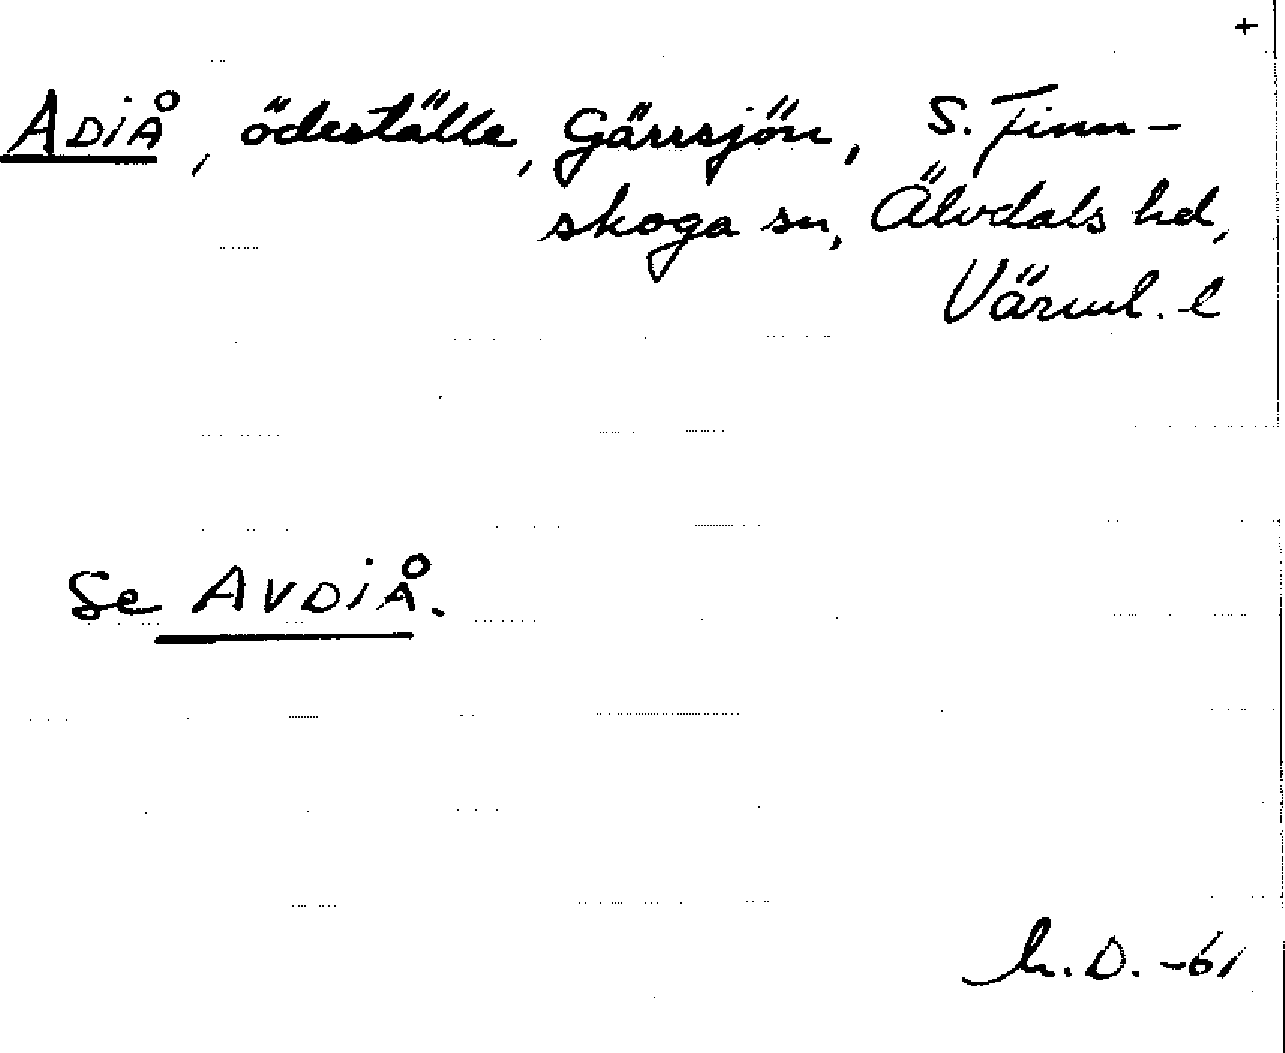 +
ADiÅ, ödeställe, Gärrsjön, S. Finn-
skoga sn, Älvdals hd,
Värml. l
Se AVDiÅ.
h. D. -61